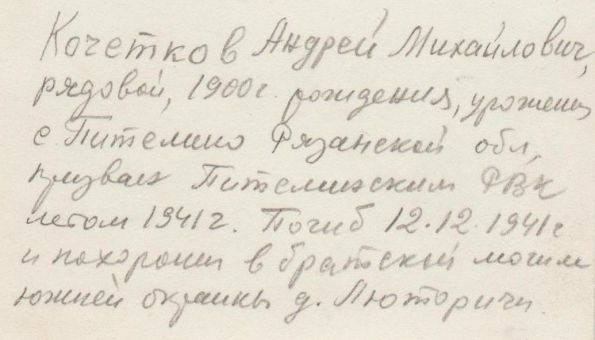 Кочетков Андрей Михайлович,
рядовой, 1900г. рождения, урожени
с. Пителино Рязанской обл,
призван Пителинским РВК
летом 1941г. Погиб 12.12.1941г
и похоронен в братской могиле
южней окраины д. Люторичи.